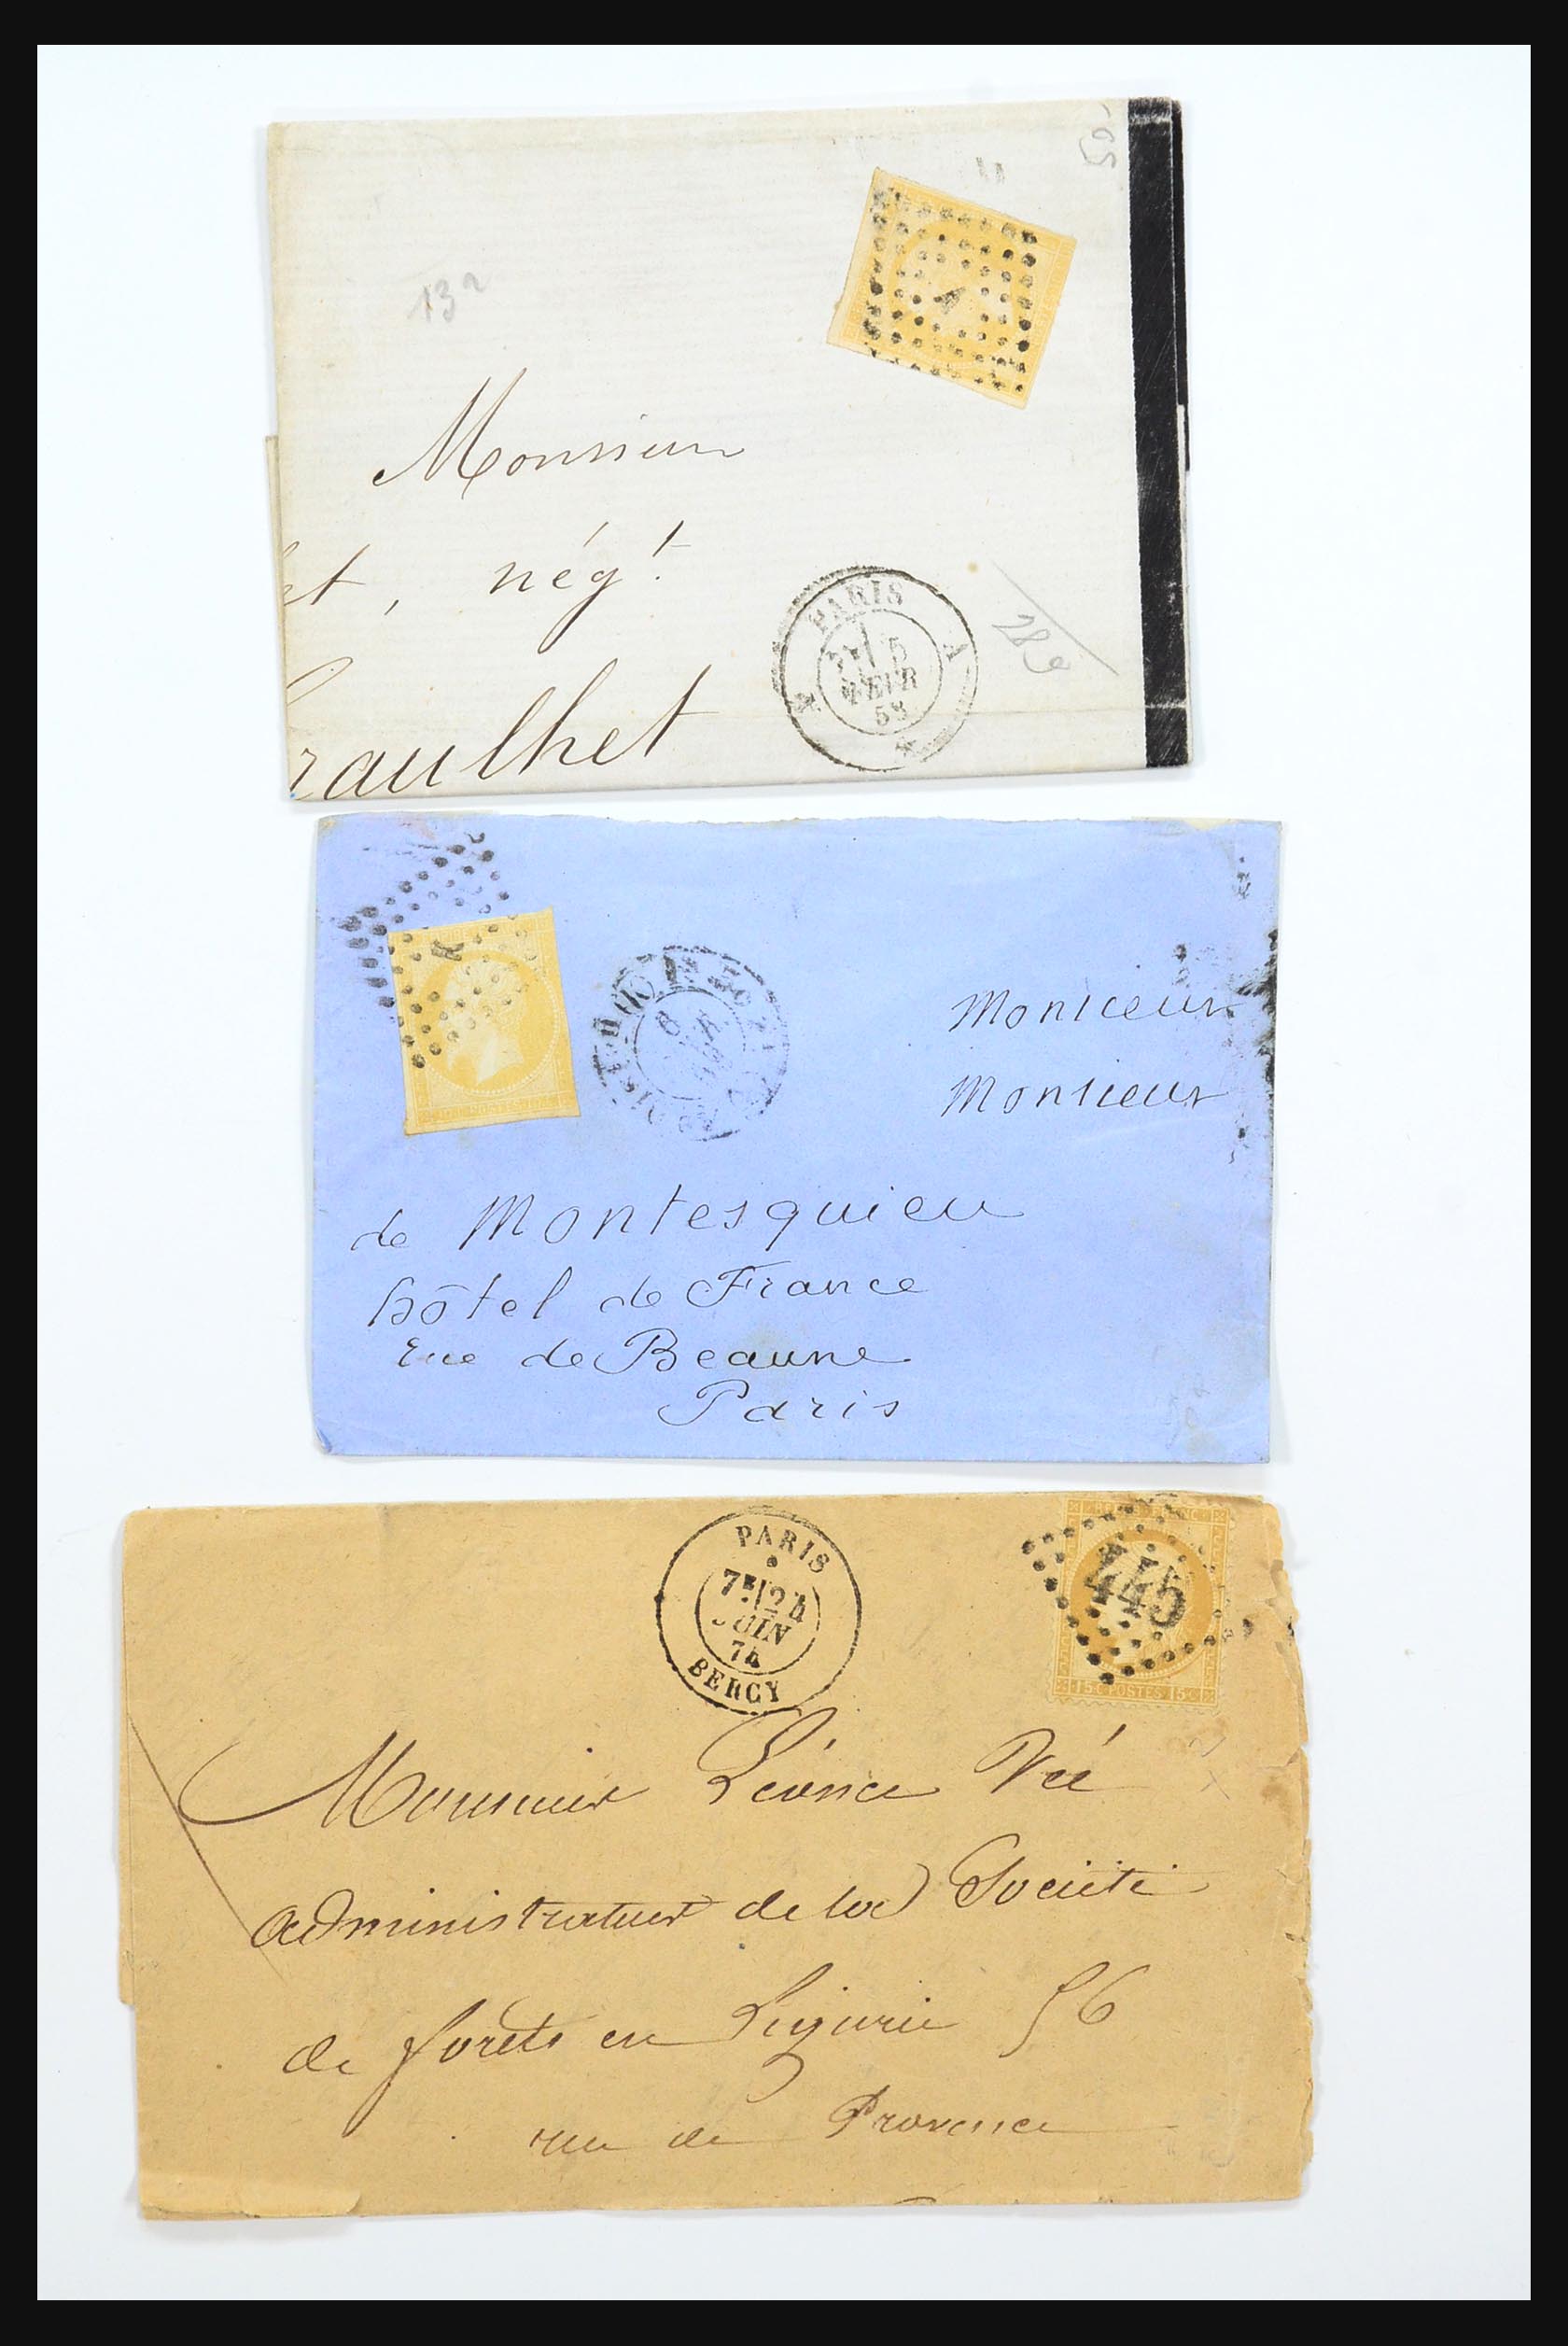 13a
Monsieur
et, nég.t
raulhet
PARIS
5
FEVR
58
A
Monsieur
Monsieur
de Montesquieu
hôtel de France
Rue de Beaune
Paris
PARIS
7E/24
JUIN
74
BERCY
445
15c POSTES 15c
Monsieur Léonce Vée
administrateur de la Société
de forêts en Ligurie 56
rue de Provence